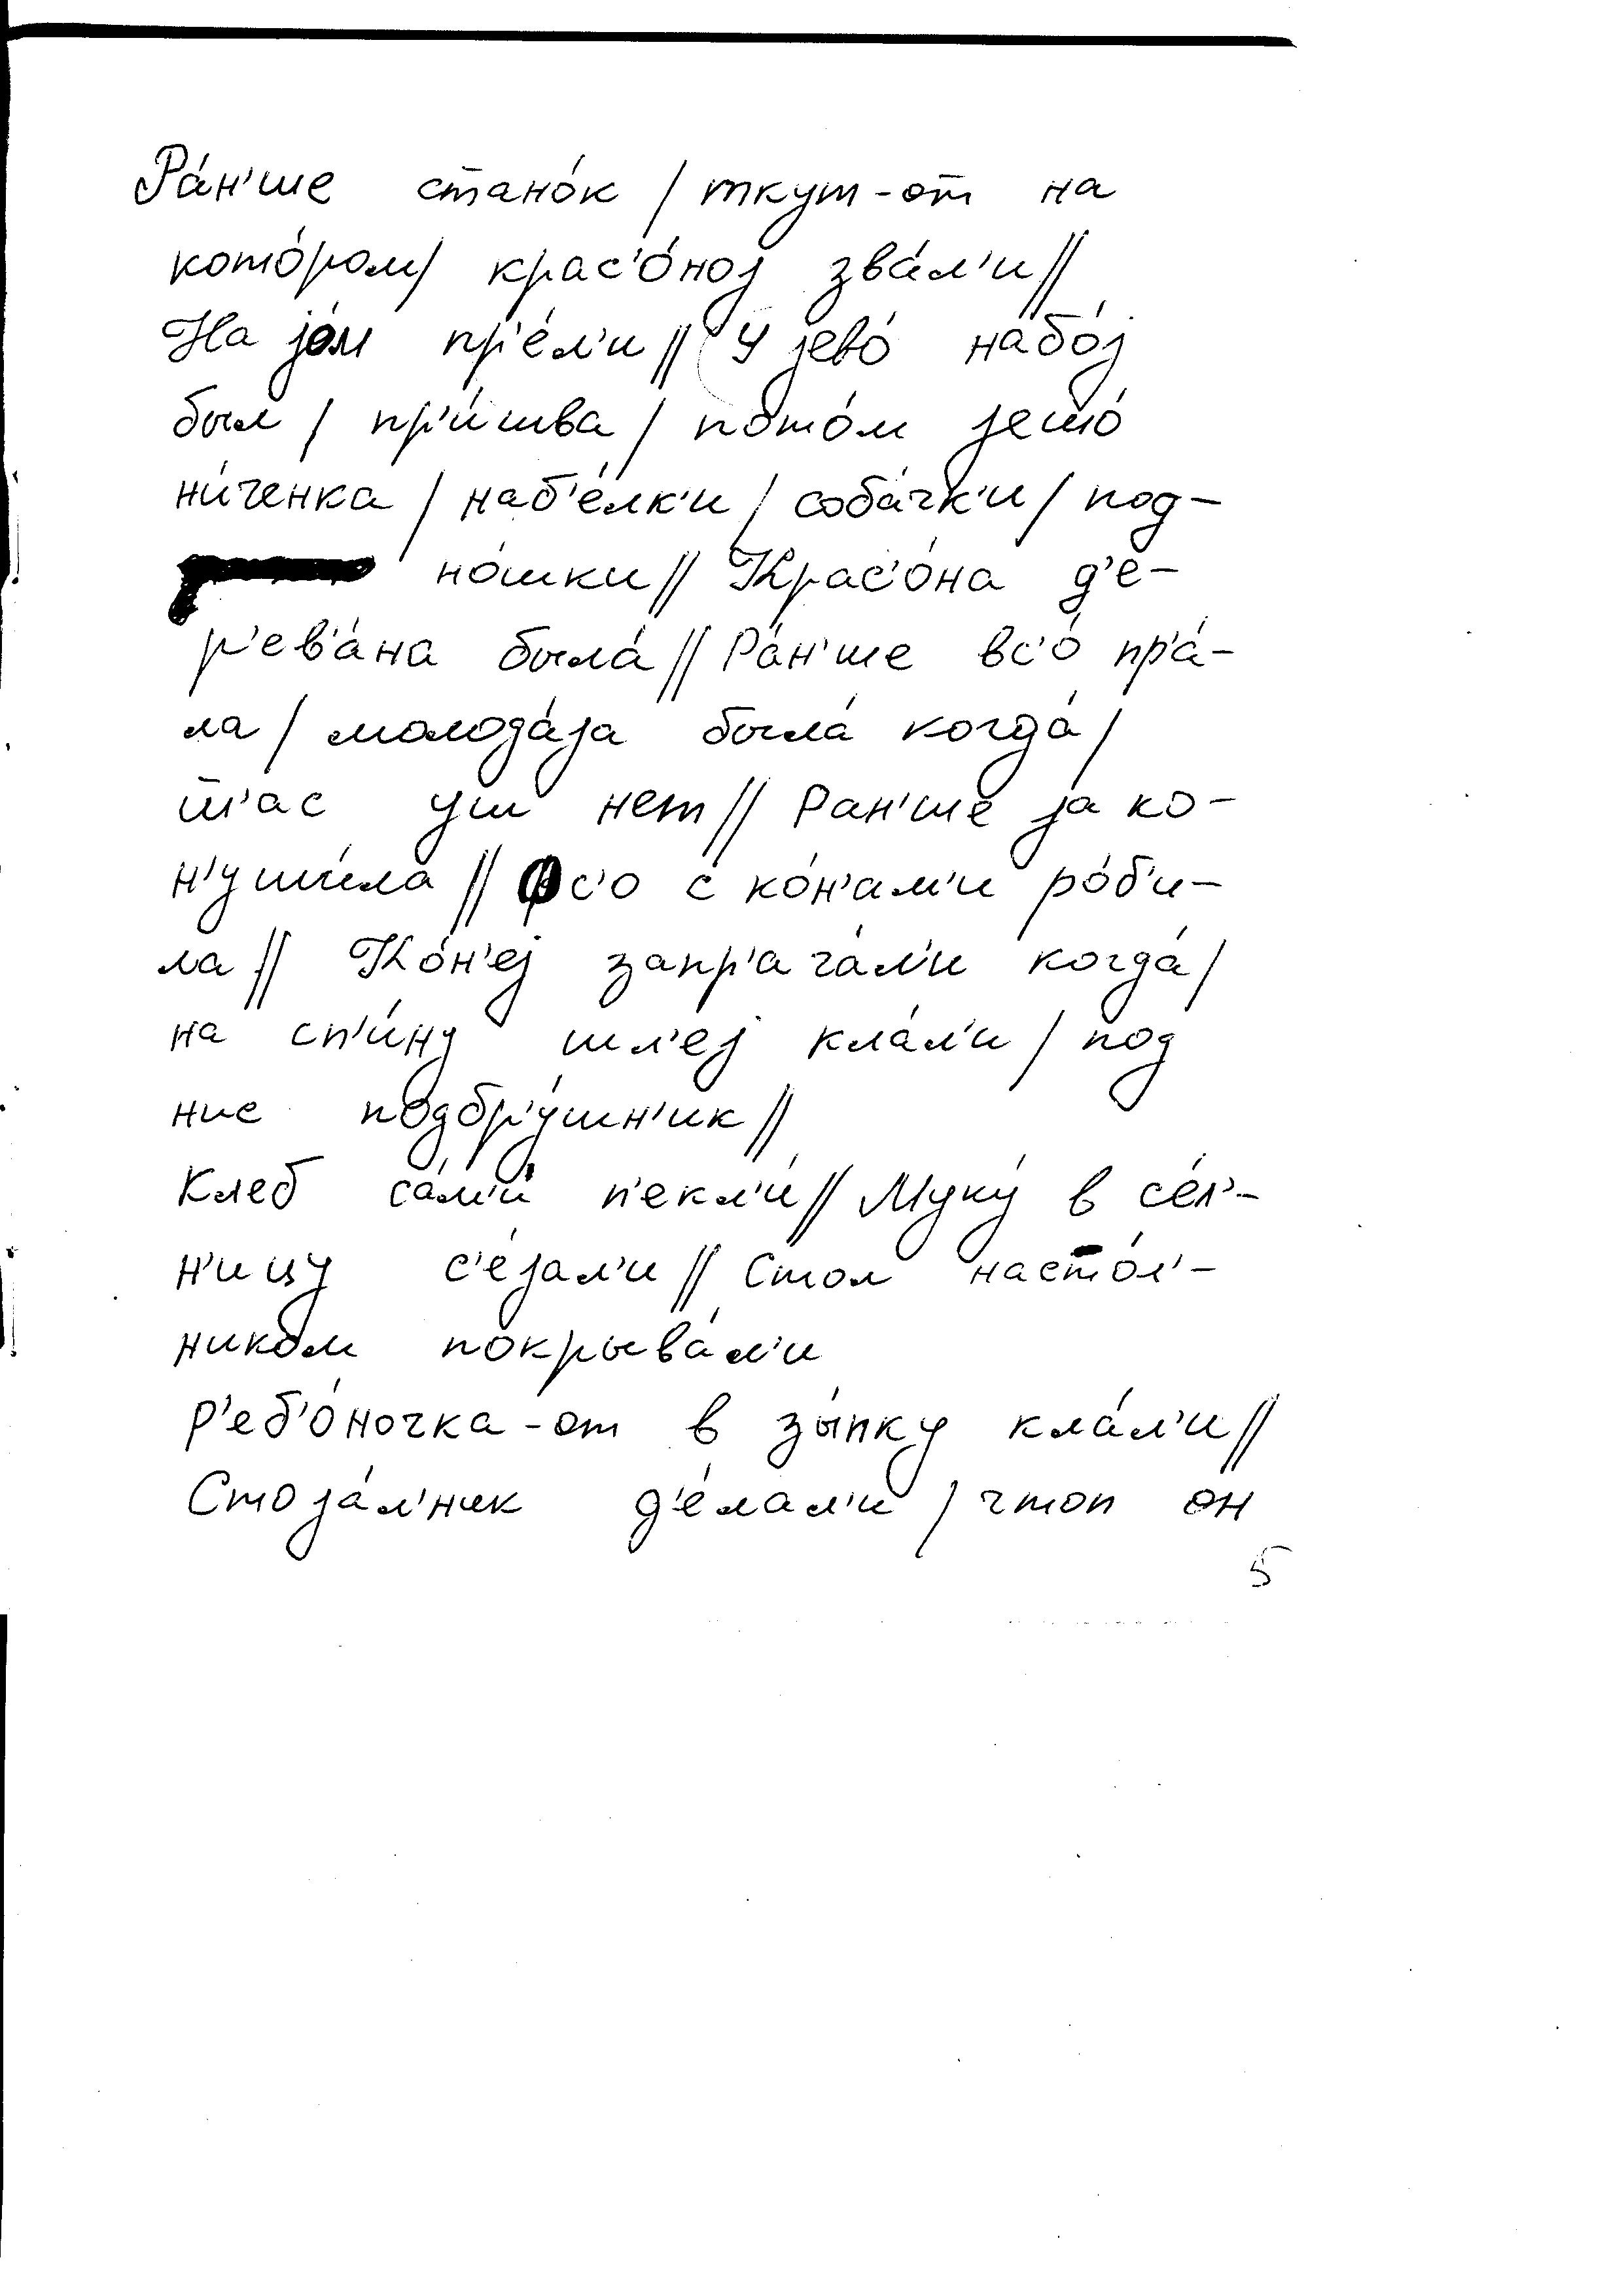 Ра́н'ше стано́к / ткут-от на
кото́ром / крас'о́ној зва́л'и //
На јо́м пр'е́л'и // У јево́ набо́ј
был / пр'и́шва / пото́м јешо́
ни́ченка / наб'е́лк'и / соба́чк'и / под-
но́шки // Крас'о́на д'е-
р'ев'а́на была́ // Ра́н'ше вс'о́ пр'а́-
ла / молода́ја была́ когда́ /
ш'ас уш нет // Ран'ше ја ко-
н'уши́ла // Фс'о с ко́н'ам'и ро́б'и-
ла // Ко́н'еј запр'ага́л'и когда́ /
на сп'и́ну шл'еј кла́л'и / под
нис подбр'у́шн'ик //
Клеб са́м'и п'екл'и́ // Муку́ в се́л'-
н'ицу с'е́јал'и // Стол насто́л'-
ником покрыва́л'и
р'еб'о́ночка-от в зы́пку кла́л'и //
Стоја́л'ник д'е́лал'и / чтоп он
5